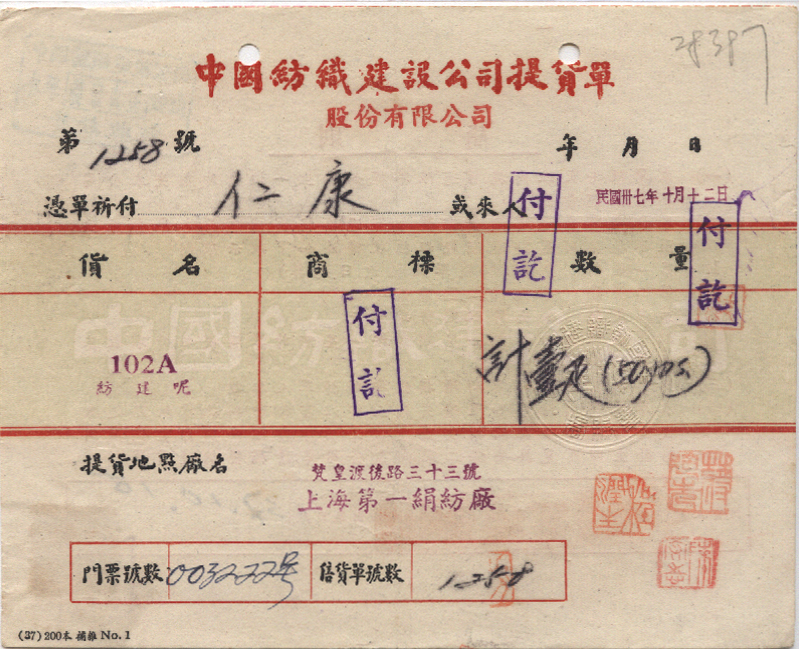 28387
中國紡織建設公司提貨單
股份有限公司
第1258號 年 月 日
憑單祈付 仁康 或來人 民國卅七年十月十二日
貨名 商標 數量
付訖
付訖
付訖
中國紡
102A
紡建呢
計壹疋(50yds)
提貨地點廠名
梵皇渡後路三十三號
上海第一絹紡廠
門票號數 003222号 售貨單號數 1258
(37) 200本 No. 1